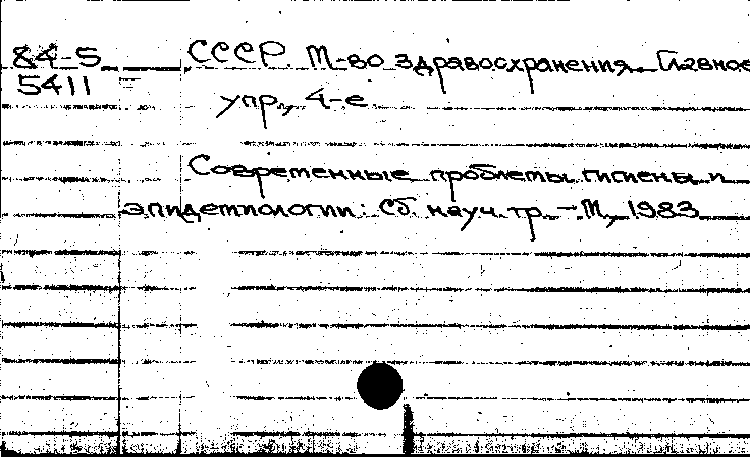 84-5
5411
СССР. М-во здравоохранения. Главное
упр., 4-е
Современные проблемы гигиены и
эпидемиологии: Сб. науч. тр. - М., 1983